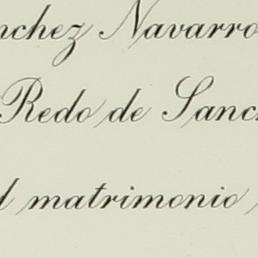 nchez Navarro
Redo de Sanc
l matrimonio